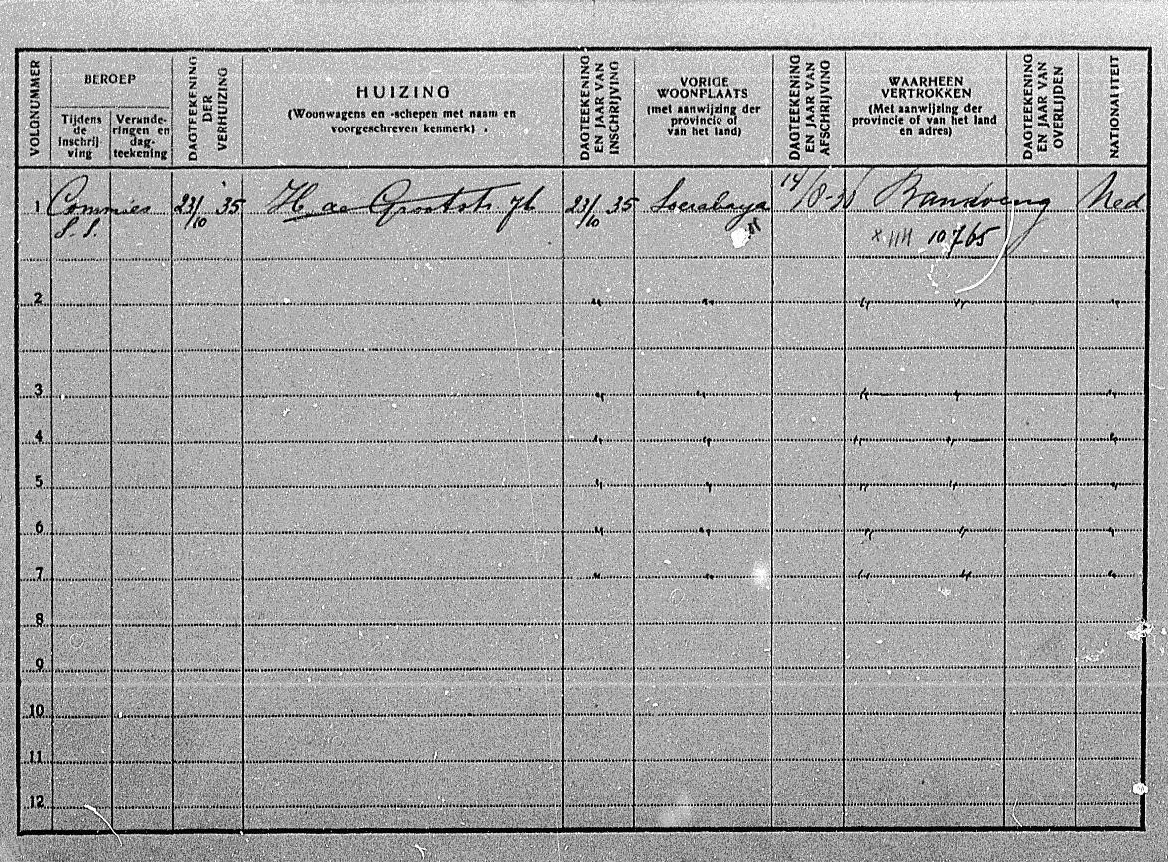 VOLGNUMMER
BEROEP
Tijdens de inschrijving
Verande-ringen en dag-teekening
DAGTEEKENING DER VERHUIZING
HUIZING
(Woonwagens en -schepen met naam en
voorgeschreven kenmerk)
DAGTEEKENING EN JAAR VAN INSCHRIJVING
VORIGE
WOONPLAATS
(met aanwijzing der
provincie of
van het land)
DAGTEEKENING EN JAAR VAN AFSCHRIJVING
WAARHEEN
VERTROKKEN
(Met aanwijzing der
provincie of van het land
en adres)
DAGTEEKENING EN JAAR VAN OVERLIJDEN
NATIONALITEIT
1 Commies 23/10 '35 H de Grootstr 76 23/10 35 Soerabaya 14/8-36 Bandoeng Ned
S.S. 10765
2 " " " " "
3 " " " " "
4 " " " " "
5 " " " " "
6 " " " " "
7 " " " " "
8
9
10
11
12